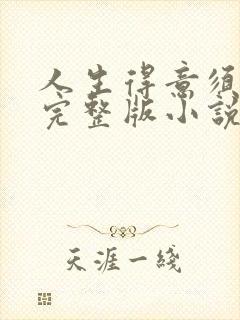 人生得意须
完整版小説
天涯一綫